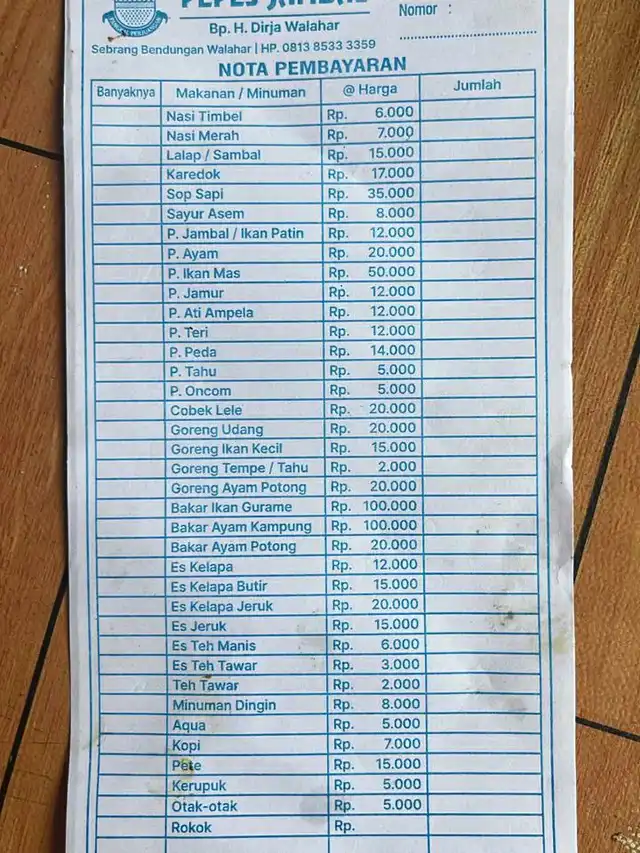 PEPES JAMBAL
Bp. H. Dirja Walahar
Nomor :
Sebrang Bendungan Walahar | HP. 0813 8533 3359
NOTA PEMBAYARAN
Banyaknya Makanan / Minuman @ Harga Jumlah
Nasi Timbel Rp. 6.000
Nasi Merah Rp. 7.000
Lalap / Sambal Rp. 15.000
Karedok Rp. 17.000
Sop Sapi Rp. 35.000
Sayur Asem Rp. 8.000
P. Jambal / Ikan Patin Rp. 12.000
P. Ayam Rp. 20.000
P. Ikan Mas Rp. 50.000
P. Jamur Rp. 12.000
P. Ati Ampela Rp. 12.000
P. Teri Rp. 12.000
P. Peda Rp. 14.000
P. Tahu Rp. 5.000
P. Oncom Rp. 5.000
Cobek Lele Rp. 20.000
Goreng Udang Rp. 20.000
Goreng Ikan Kecil Rp. 15.000
Goreng Tempe / Tahu Rp. 2.000
Goreng Ayam Potong Rp. 20.000
Bakar Ikan Gurame Rp. 100.000
Bakar Ayam Kampung Rp. 100.000
Bakar Ayam Potong Rp. 20.000
Es Kelapa Rp. 12.000
Es Kelapa Butir Rp. 15.000
Es Kelapa Jeruk Rp. 20.000
Es Jeruk Rp. 15.000
Es Teh Manis Rp. 6.000
Es Teh Tawar Rp. 3.000
Teh Tawar Rp. 2.000
Minuman Dingin Rp. 8.000
Aqua Rp. 5.000
Kopi Rp. 7.000
Pete Rp. 15.000
Kerupuk Rp. 5.000
Otak-otak Rp. 5.000
Rokok Rp.